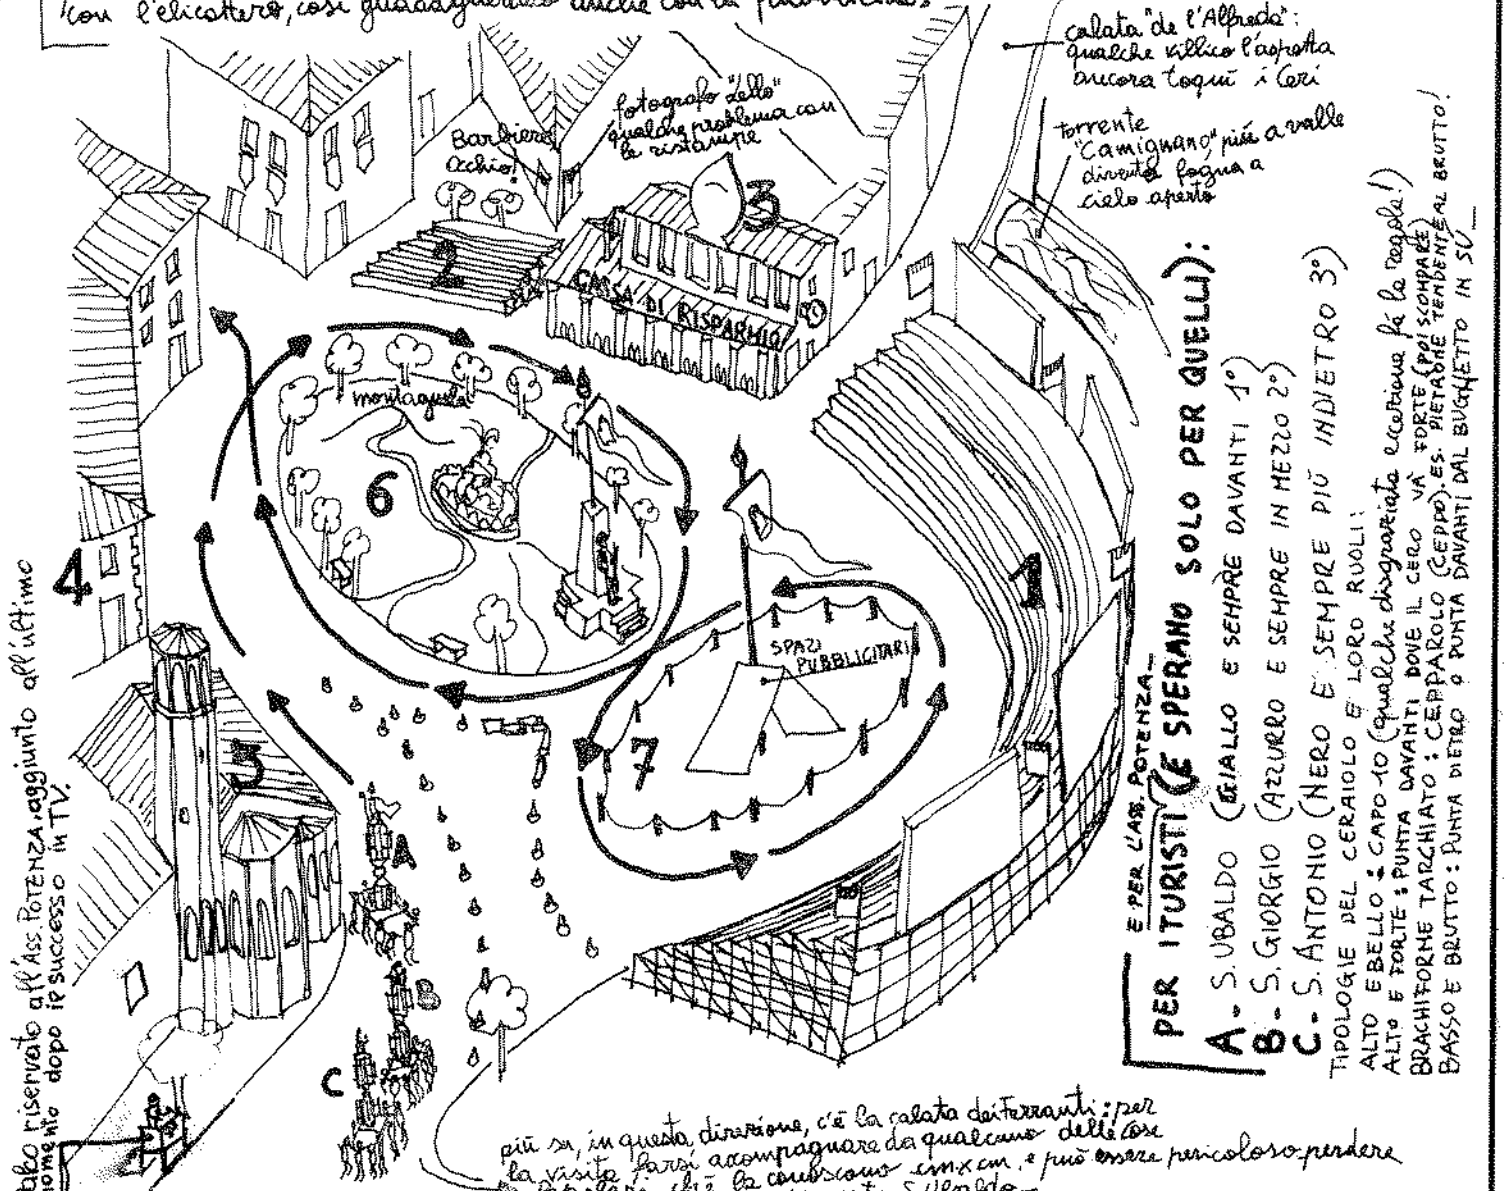 con l'elicottero, così guadagneremo anche con la
calata "de l'Alfredo":
qualche villico l'aspetta
ancora loquì i Ceri
torrente
"Camignano", più a valle
diventa fogna a
cielo aperto
Barbiere
occhio!
fotografo "Lello"
qualche problema con
le ristampe
3
2
CASSA DI RISPARMIO
montagnola
6
4
1
5
SPAZI
PUBBLICITARI
7
A
B
C
riservato all'Ass. POTENZA, aggiunto all'ultimo
momento dopo il successo in TV.
E PER L'ASS. POTENZA_
PER I TURISTI (E SPERANO SOLO PER QUELLI):
A - S. UBALDO (GIALLO E SEMPRE DAVANTI 1°)
B - S. GIORGIO (AZZURRO E SEMPRE IN MEZZO 2°)
C - S. ANTONIO (NERO E SEMPRE PIÙ INDIETRO 3°)
TIPOLOGIE DEL CERAIOLO E LORO RUOLI:
ALTO E BELLO: CAPO 10 (qualche disgraziata eccezione fà la regola!)
ALTO E FORTE: PUNTA DAVANTI DOVE IL CERO VÀ FORTE (POI SCOMPARE)
BRACHIFORME TARCHIATO: CEPPAROLO (CEPPO), ES. PIETRONE TENDENTE AL BRUTO!
BASSO E BRUTTO: PUNTA DIETRO O PUNTA DAVANTI DAL BUGHETTO IN SÙ_
più su, in questa direzione, c'è la calata dei Ferranti: per
la visita farsi accompagnare da qualcuno delle case
chè la conoscono cm x cm, e può essere pericoloso perdere
S. Ubaldo_